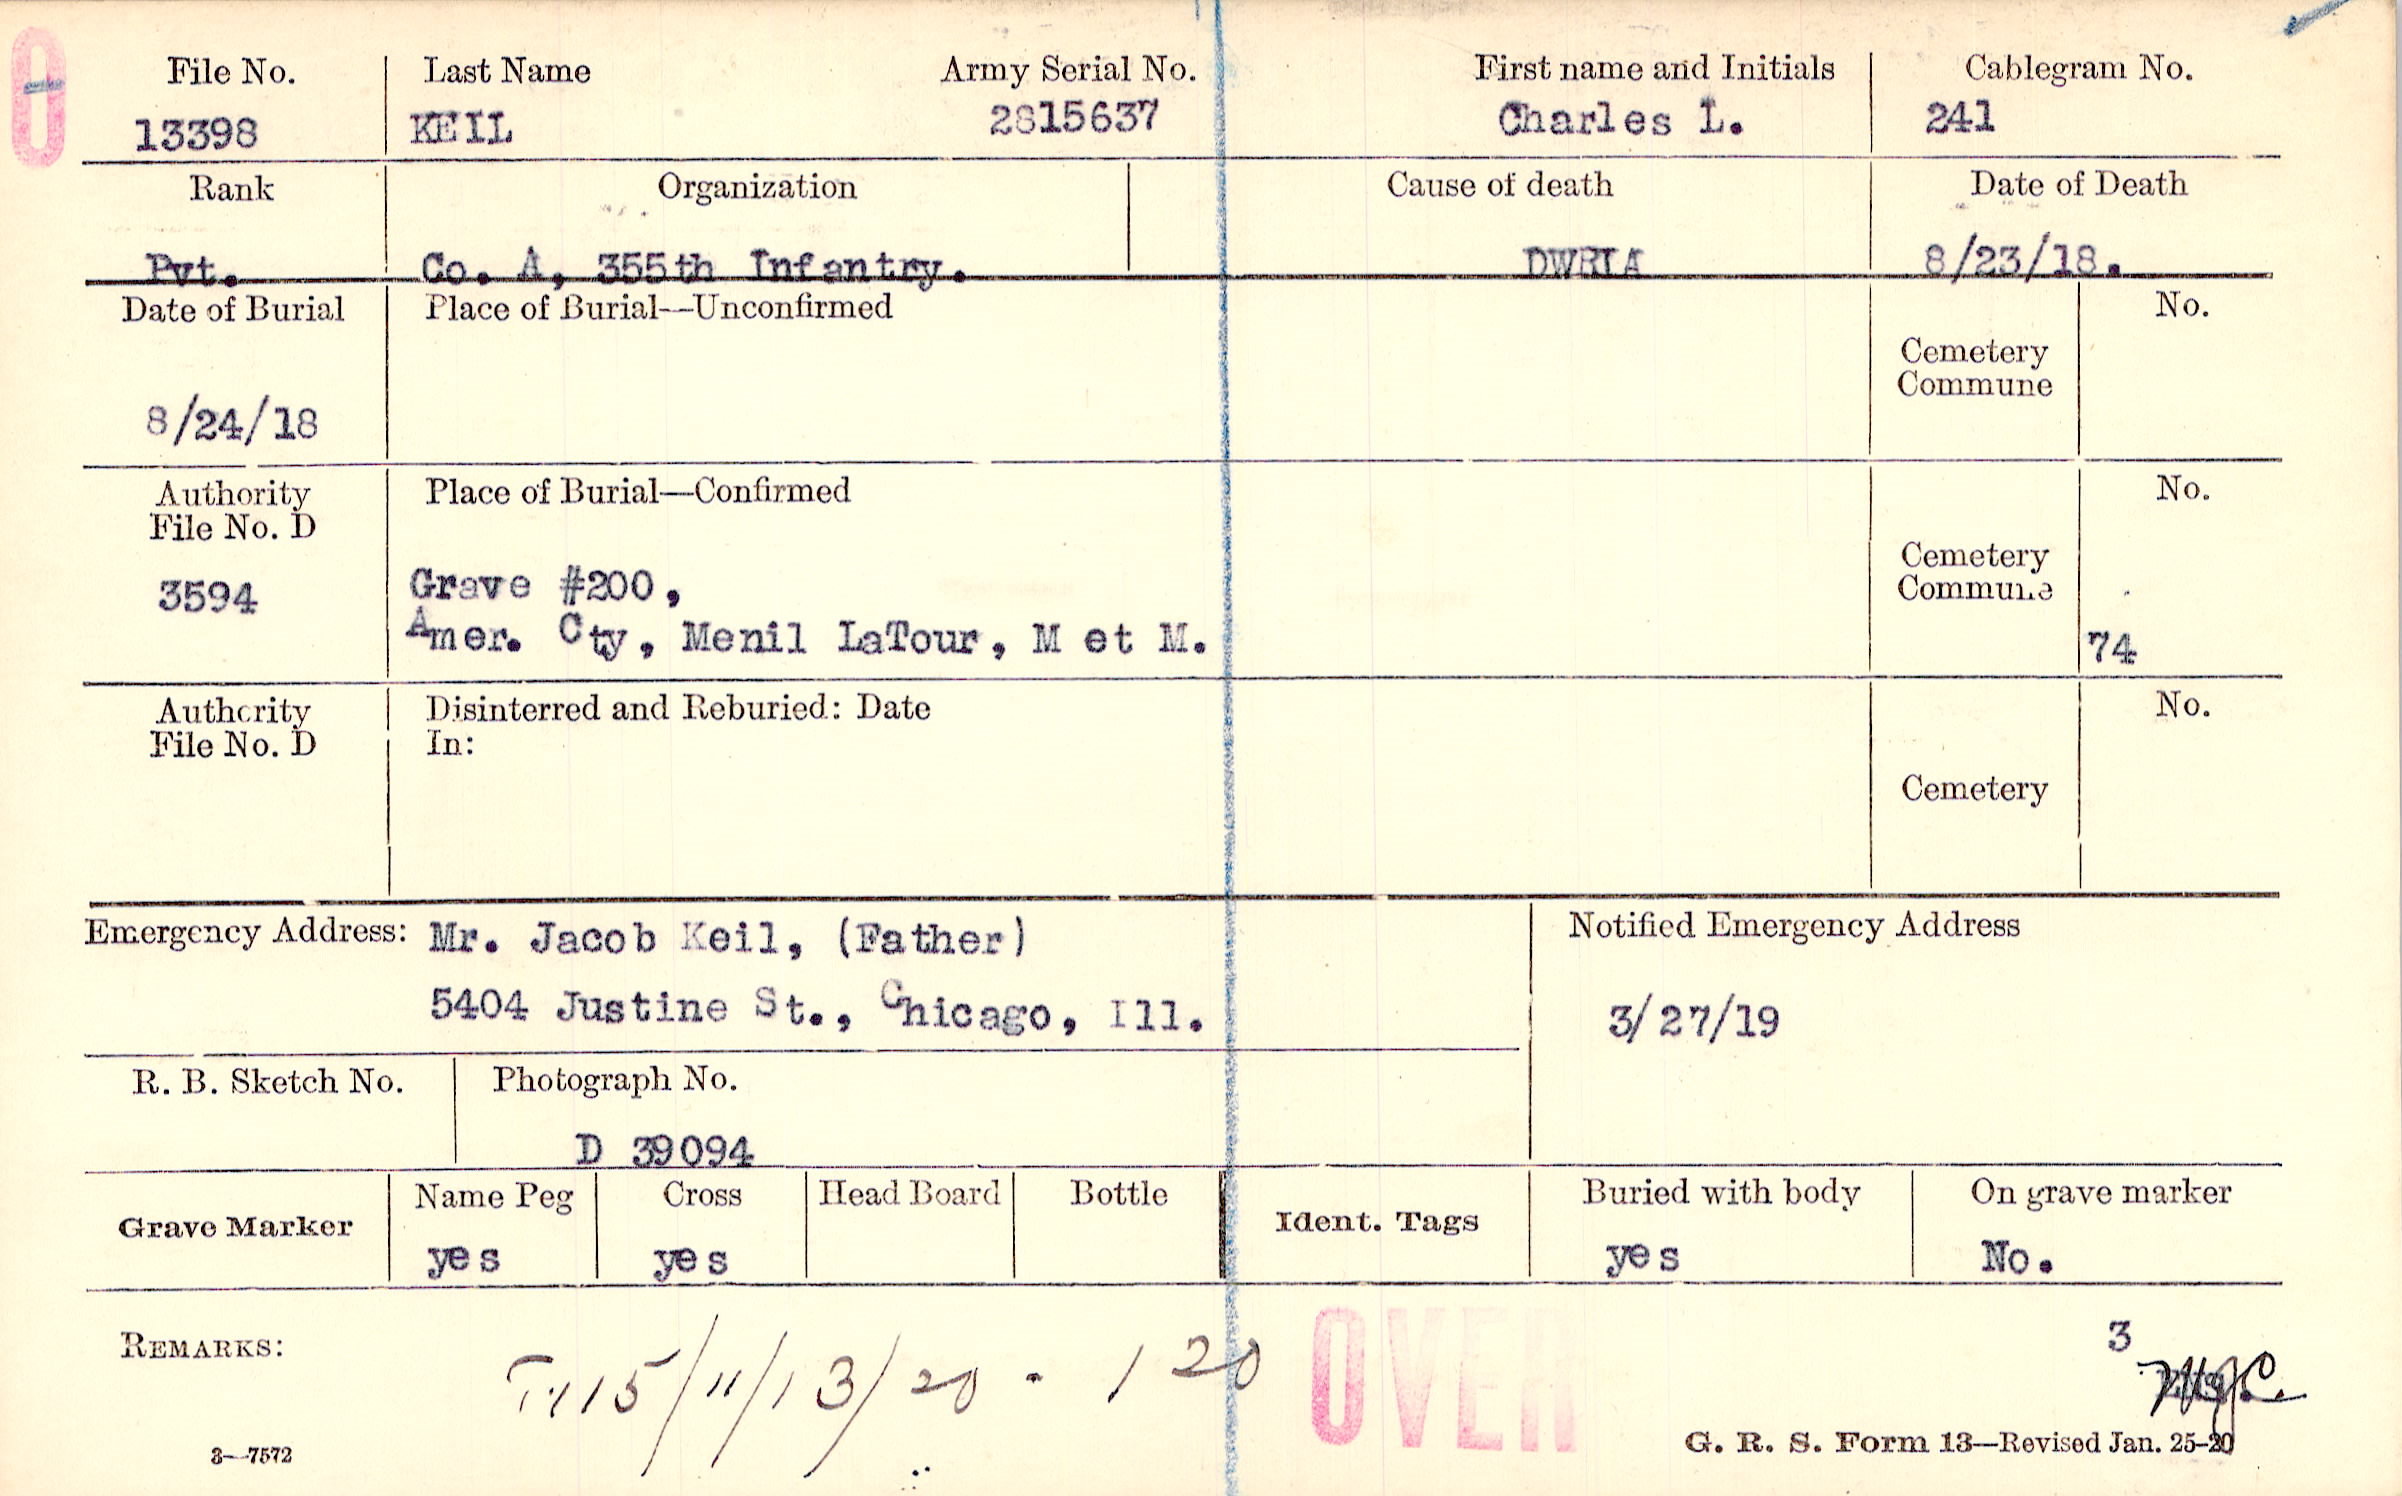 File No. Last Name Army Serial No. First name and Initials Cablegram No.
13398 KEIL 2815637 Charles L. 241
Rank Organization Cause of death Date of Death
Pvt. Co. A, 355th Infantry. DWRIA 8/23/18.
Date of Burial Place of Burial—Unconfirmed No.
Cemetery
Commune
8/24/18
Authority Place of Burial—Confirmed No.
File No. D
Cemetery
Commune
3594 Grave #200,
Amer. Cty, Menil LaTour, M et M. 74
Authority Disinterred and Reburied: Date No.
File No. D In:
Cemetery
Emergency Address: Mr. Jacob Keil, (Father) Notified Emergency Address
5404 Justine St., Chicago, Ill. 3/27/19
R. B. Sketch No. Photograph No.
D 39094
Grave Marker Name Peg Cross Head Board Bottle Ident. Tags Buried with body On grave marker
yes yes yes No.
REMARKS: 3
/11/13/20 - 120
OVER
3—7572 G. R. S. Form 13—Revised Jan. 25-20